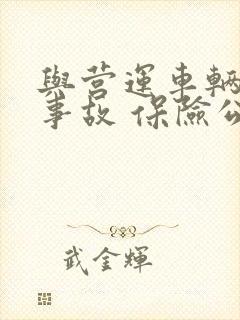 與营運車輛
事故 保險公
武金輝